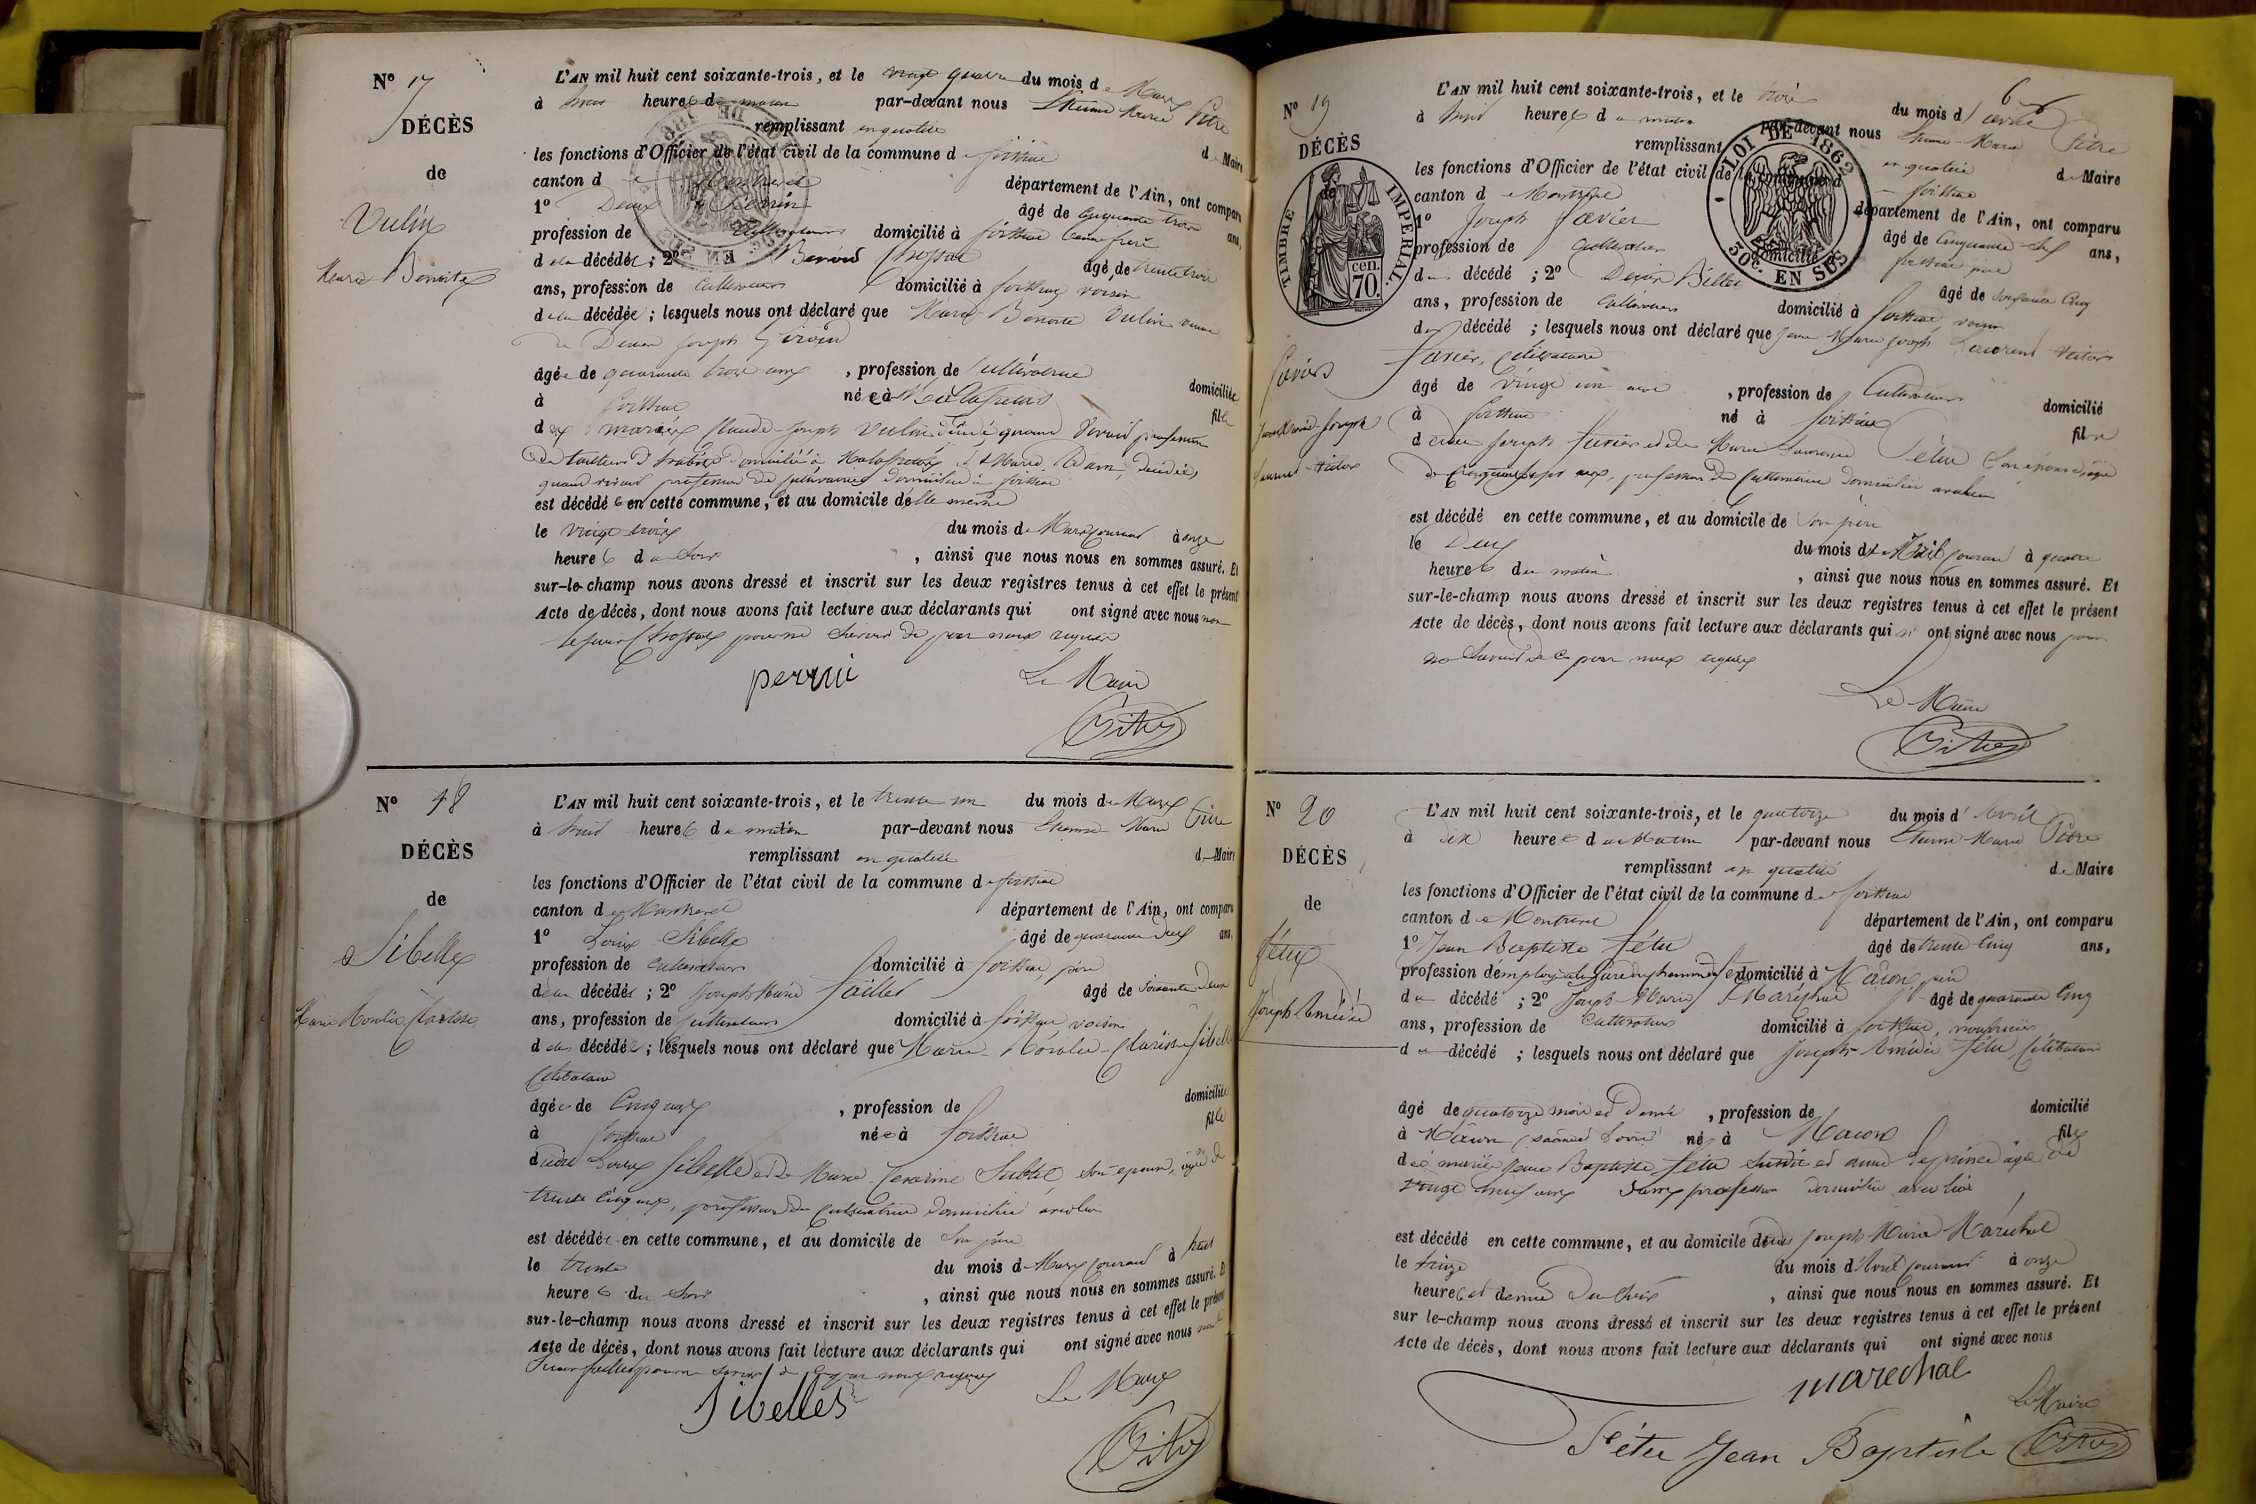 N° 17
DÉCÈS
de
Vulin
Marie Benoite
L'AN mil huit cent soixante-trois, et le vingt quatre du mois de Mars
à huit heures du matin par-devant nous Etienne Marie Pitre
remplissant en qualité de Maire
les fonctions d'Officier de l'état civil de la commune de foissiat
canton de Montrevel département de l'Ain, ont comparu
1° Denis Perrin âgé de Cinquante trois ans,
profession de Cultivateur domicilié à foissiat beau frère
de la décédée ; 2° Benoit Chossat âgé de trente trois
ans, profession de Cultivateur domicilié à foissiat voisin
de la décédée ; lesquels nous ont déclaré que Marie Benoite Vulin veuve
de Denis Joseph
âgée de quarante trois ans, profession de Cultivatrice domiciliée
à foissiat née à Malafretaz fille
des mariés Claude Joseph Vulin décédé quand vivait profession
de tailleur d'habits domicilié à Malafretaz, et Marie Adam, décédée,
quand vivait profession de Cultivatrice domiciliée à foissiat
est décédée en cette commune, et au domicile d'elle même
le vingt trois du mois de Mars courant à onze
heures du Soir, ainsi que nous nous en sommes assuré. Et
sur-le-champ nous avons dressé et inscrit sur les deux registres tenus à cet effet le présent
Acte de décès, dont nous avons fait lecture aux déclarants qui ont signé avec nous non
le sieur Chossat pour ne savoir de ce par nous requis
perrin Le Maire
Pitre
N° 18
DÉCÈS
de
Sibelle
Marie Clarisse
L'AN mil huit cent soixante-trois, et le trente un du mois de Mars
à huit heures du matin par-devant nous Etienne Marie Pitre
remplissant en qualité de Maire
les fonctions d'Officier de l'état civil de la commune de foissiat
canton de Montrevel département de l'Ain, ont comparu
1° Louis Sibelle âgé de quarante deux ans,
profession de Cultivateur domicilié à foissiat, père
de la décédée ; 2° Joseph Marie âgé de soixante deux
ans, profession de Cultivateur domicilié à foissiat voisin
de la décédée ; lesquels nous ont déclaré que Marie Clarisse Sibelle
Célibataire
âgée de Cinq ans, profession de domiciliée
à foissiat née à foissiat fille
dudit Louis Sibelle et de Marie Son épouse, âgée de
trente cinq ans, profession de Cultivatrice domiciliée avec lui
est décédée en cette commune, et au domicile de Son père
le trente du mois de Mars courant à huit
heures du Soir, ainsi que nous nous en sommes assuré. Et
sur-le-champ nous avons dressé et inscrit sur les deux registres tenus à cet effet le présent
Acte de décès, dont nous avons fait lecture aux déclarants qui ont signé avec nous non le
Sieur pour ne savoir de ce par nous requis
Sibelles Le Maire
Pitre
6
N° 19
DÉCÈS
de
TIMBRE IMPERIAL
cen. 70.
LOI DE 1862
50c. EN SUS
Joseph
Laurent Victor
L'AN mil huit cent soixante-trois, et le trois du mois d'avril
à huit heures du matin par-devant nous Etienne Marie Pitre
remplissant en qualité de Maire
les fonctions d'Officier de l'état civil de la commune de foissiat
canton de Montrevel département de l'Ain, ont comparu
1° Joseph âgé de Cinquante Six ans,
profession de Cultivateur domicilié à foissiat père
du décédé ; 2° Denis Billet âgé de soixante Cinq
ans, profession de Cultivateur domicilié à foissiat voisin
du décédé ; lesquels nous ont déclaré que Jean Marie Joseph Laurent Victor
Célibataire
âgé de Vingt un ans, profession de Cultivateur domicilié
à foissiat né à foissiat fils
dudit Joseph et de Marie Laurence Son épouse, âgée
de Cinquante Sept ans, profession de Cultivatrice domiciliée avec lui
est décédé en cette commune, et au domicile de Son père
le Deux du mois d'Avril courant à quatre
heures du matin, ainsi que nous nous en sommes assuré. Et
sur-le-champ nous avons dressé et inscrit sur les deux registres tenus à cet effet le présent
Acte de décès, dont nous avons fait lecture aux déclarants qui ont signé avec nous pour
ne Savoir de ce par nous requis
Le Maire
Pitre
N° 20
DÉCÈS
de
Fétu
Joseph Amédée
L'AN mil huit cent soixante-trois, et le quatorze du mois d'Avril
à dix heures du Matin par-devant nous Etienne Marie Pitre
remplissant en qualité de Maire
les fonctions d'Officier de l'état civil de la commune de foissiat
canton de Montrevel département de l'Ain, ont comparu
1° Jean Baptiste Fétu âgé de trente Cinq ans,
profession d'employé à la gare du chemin de fer domicilié à Mâcon père
du décédé ; 2° Joseph Marie Maréchal âgé de quarante Cinq
ans, profession de Cultivateur domicilié à foissiat, nourricier
du décédé ; lesquels nous ont déclaré que Joseph Amédée Fétu, Célibataire
âgé de quatorze mois et Demi, profession de domicilié
à Mâcon (Saône et Loire) né à Macon fils
des mariés Jean Baptiste Fétu Susdit et Anne âgée de
vingt neuf ans Sans profession domiciliée avec lui
est décédé en cette commune, et au domicile dudit Joseph Marie Maréchal
le treize du mois d'Avril courant à onze
heures et demie Du Soir, ainsi que nous nous en sommes assuré. Et
sur le-champ nous avons dressé et inscrit sur les deux registres tenus à cet effet le présent
Acte de décès, dont nous avons fait lecture aux déclarants qui ont signé avec nous
marechal
Le Maire
Fétu Jean Baptiste Pitre